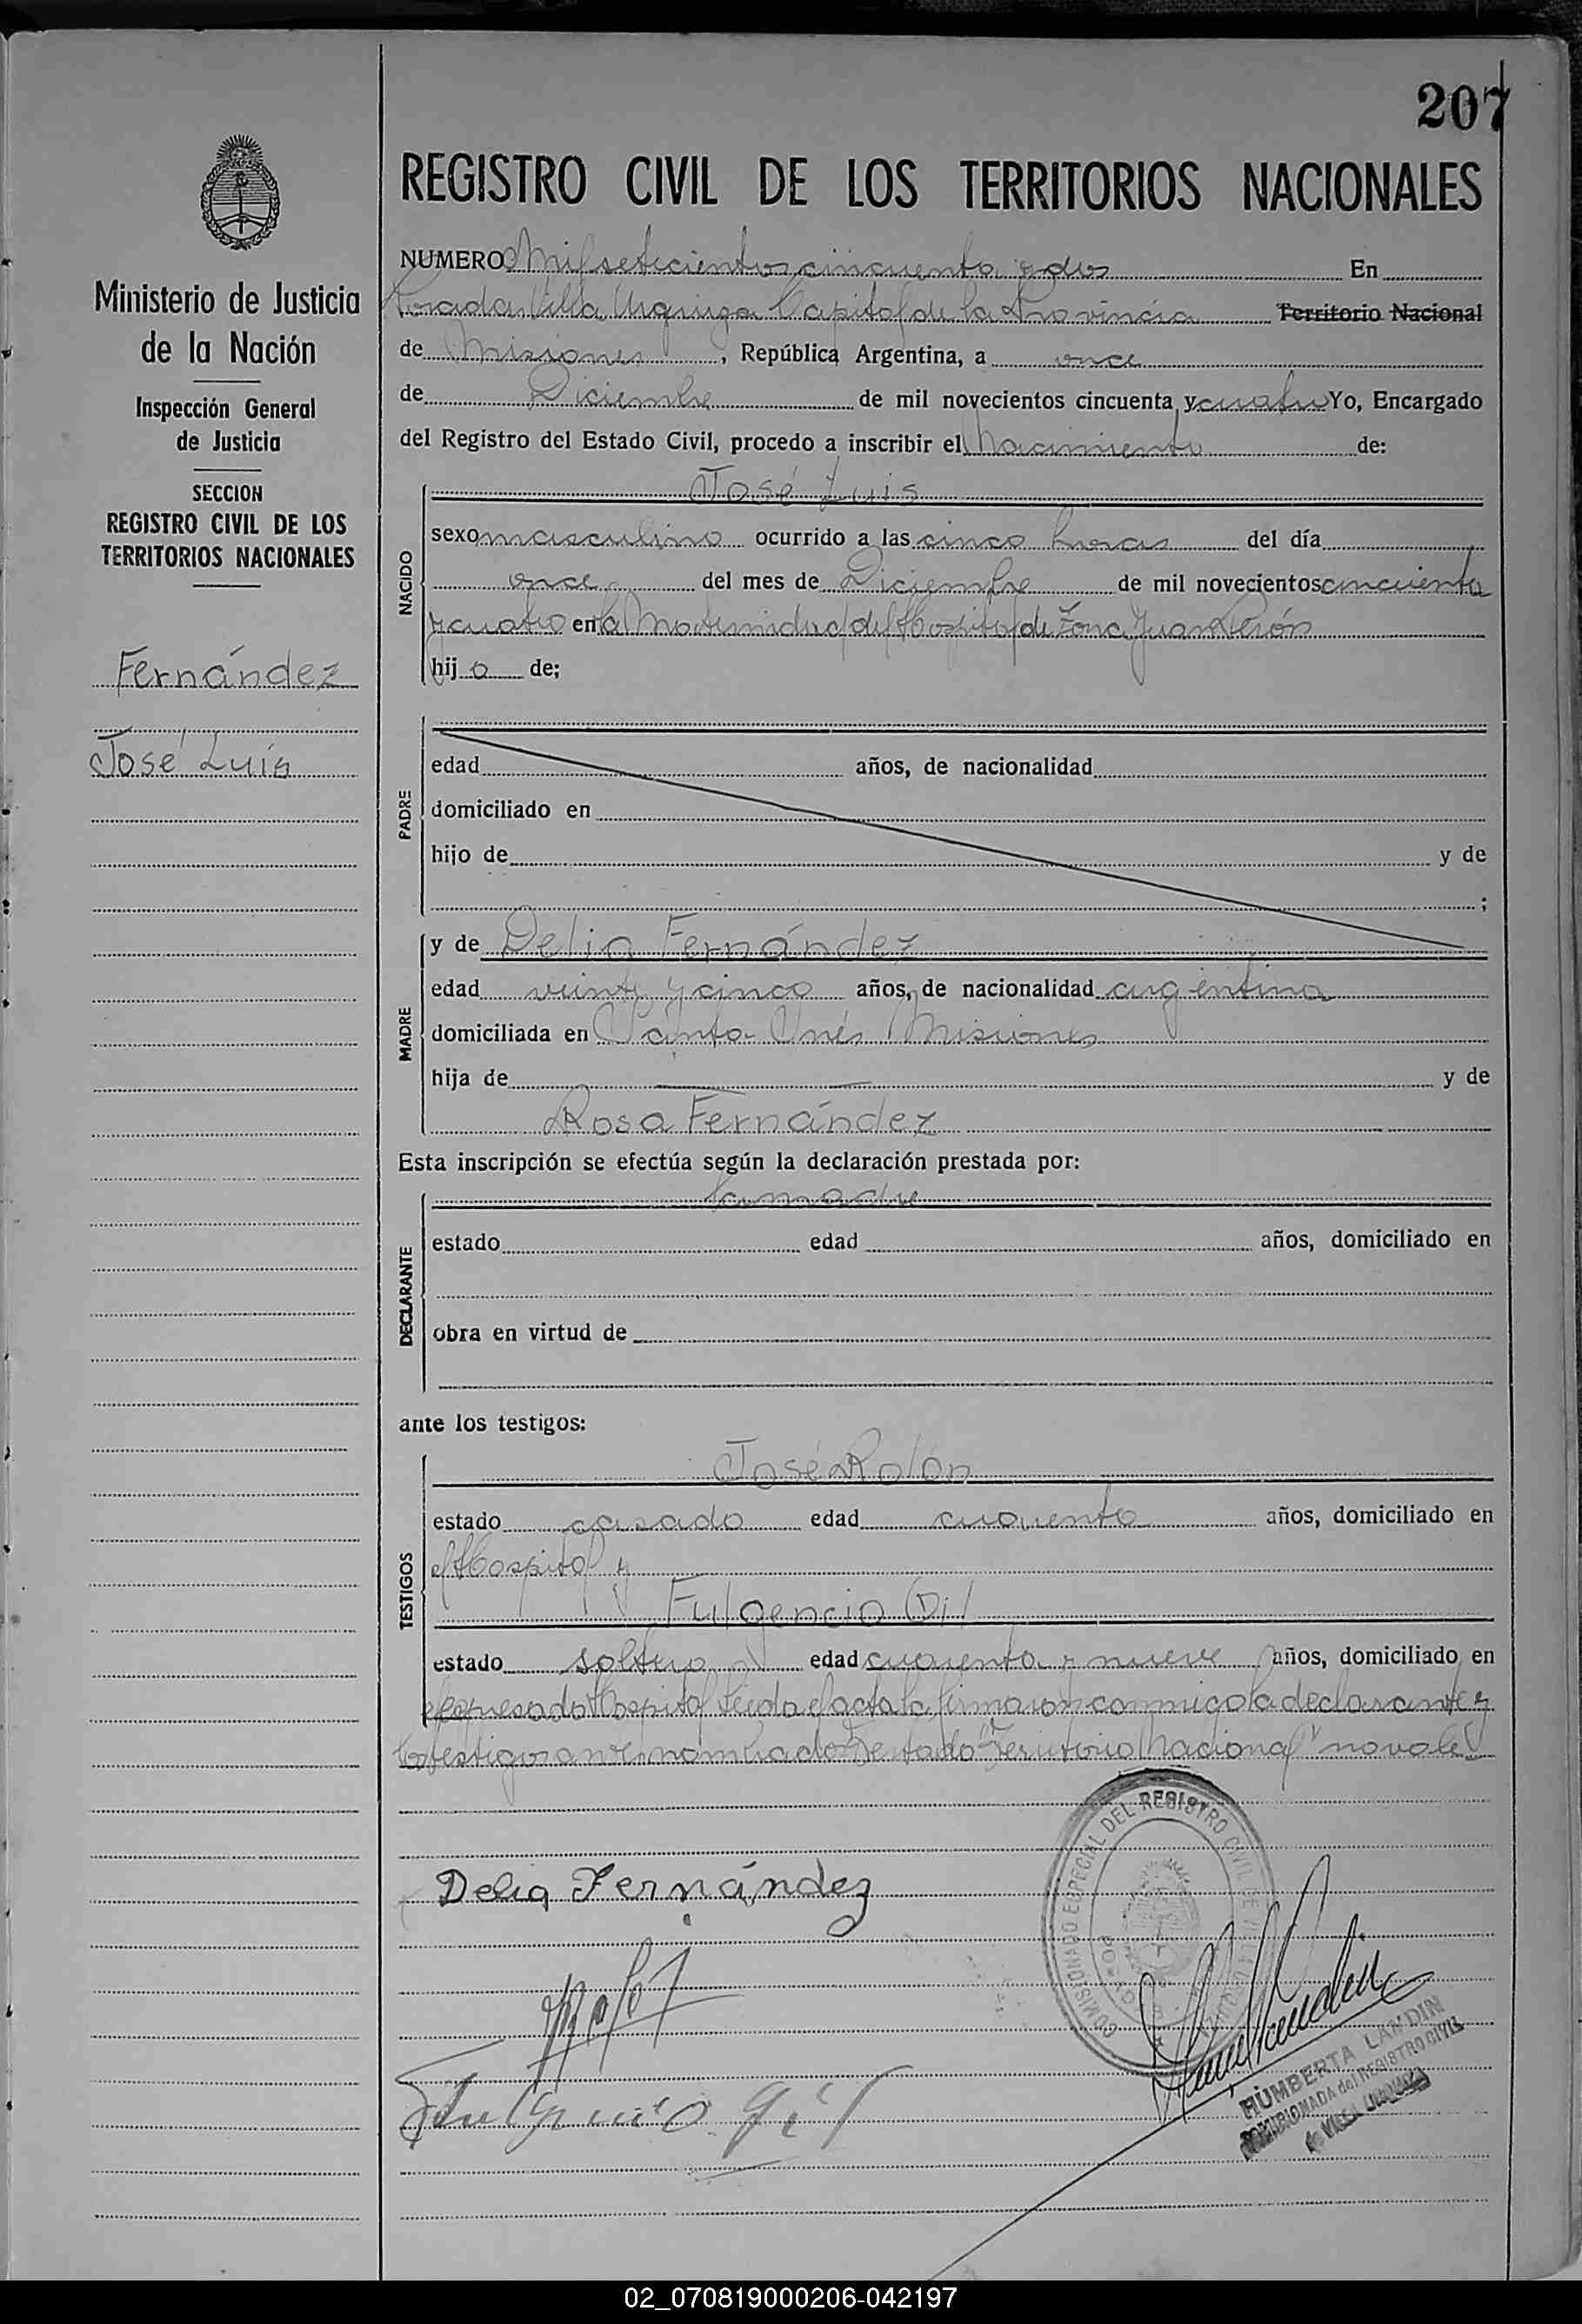 207
REGISTRO CIVIL DE LOS TERRITORIOS NACIONALES
Ministerio de Justicia
de la Nación
Inspección General
de Justicia
SECCION
REGISTRO CIVIL DE LOS
TERRITORIOS NACIONALES
Fernández
José Luis
NUMERO Mil seticientos cincuenta y dos En
Posadas Villa Urquiza Capital de la Provincia Territorio Nacional
de Misiones, República Argentina, a once
de Diciembre de mil novecientos cincuenta y cuatro Yo, Encargado
del Registro del Estado Civil, procedo a inscribir el Nacimiento de:
NACIDO
José Luis
sexo masculino ocurrido a las cinco horas del día
once del mes de Diciembre de mil novecientos cincuenta
y cuatro en la Maternidad del Hospital de Zona Juan Perón
hijo de;
PADRE
edad años, de nacionalidad
domiciliado en
hijo de y de
;
MADRE
y de Delia Fernández
edad veinte y cinco años, de nacionalidad argentina
domiciliada en Santa Inés Misiones
hija de y de
Rosa Fernández
Esta inscripción se efectúa según la declaración prestada por:
DECLARANTE
la madre
estado edad años, domiciliado en
obra en virtud de
ante los testigos:
TESTIGOS
José Rolón
estado casado edad cuarenta años, domiciliado en
el Hospital y
Fulgencio Gil
estado soltero edad cuarenta y nueve años, domiciliado en
el expresado Hospital Leida el acta la firmaron conmigo la declarante y
los testigos antes nombrados Testado "Territorio Nacional" no vale
Delia Fernández
Fulgencio Gil
COMISIONADO ESPECIAL DEL REGISTRO CIVIL DE VILLA URQUIZA
HUMBERTA LANDIN
COMISIONADA del REGISTRO CIVIL
de VILLA URQUIZA
02_070819000206-042197